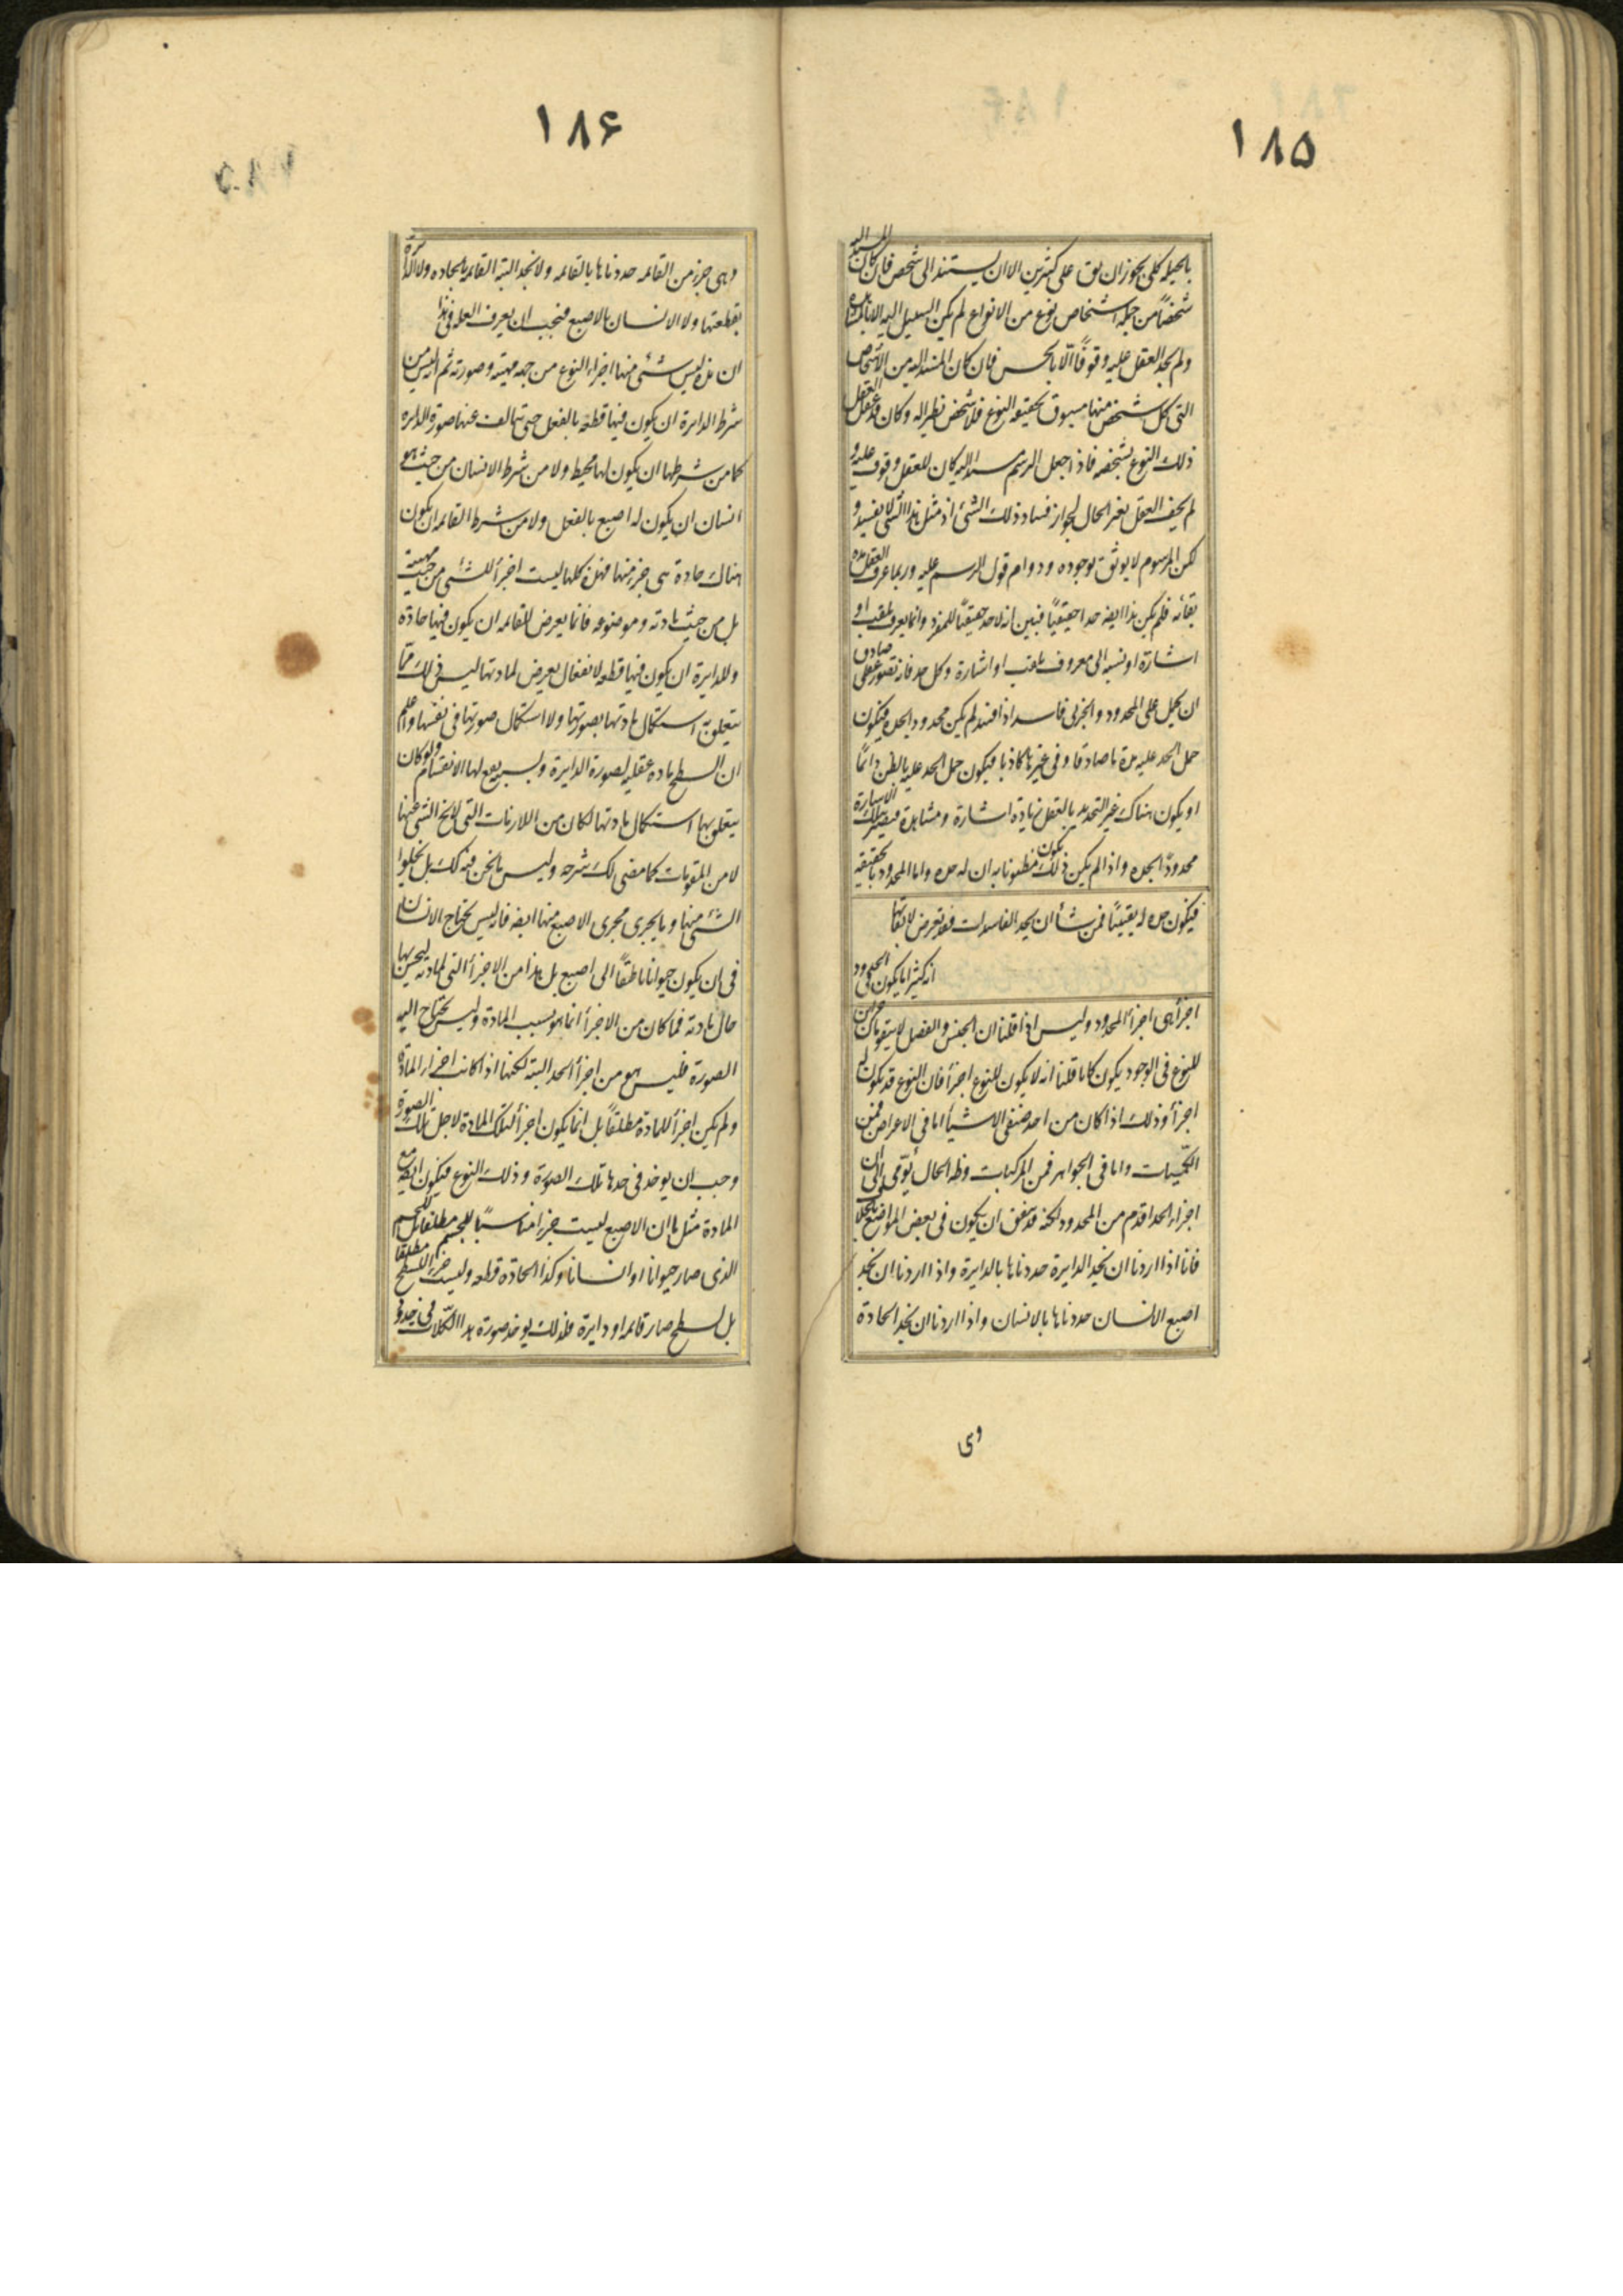 ١٨٥
بالحيله كلى يجوز ان يق على كثيرين الا ان يستند الى شخص فان كان المسند اليه
شخصاً من جمله اشخاص نوع من الانواع لم يكن السبيل اليه الا بالمشاهده
ولم يجد العقل عليه وقوفاً الّا بالحس فان كان المسند اليه من الاشخاص
التى كل شخص منها مستوف لحقيقه النوع فلا شخص نظير له وكان قد عقل العقل
ذلك النوع بشخصه فاذا جعل الرسم مسندا اليه كان للعقل وقوف عليه و
لم يخف العقل تغير الحال لجواز فساد ذلك الشئ اذ مثل هذا الشى لا يفسد و
لكن المرسوم لا يوثق بوجوده ودوام قول الرسم عليه وربما عرف العقل مده
بقأئه فلم يكن هذا ايضه حدا حقيقياً فبين انه لا حد حقيقياً للمفرد وانما يعرف بلقب او
اشارة او نسبه الى معروف بلقب او اشارة وكل حد فانه تصور عقلى صادق
ان يحمل على المحدود والجزئى فاسد اذا فسد لم يكن محدودا بحده فيكون
حمل الحد عليه مدة ما صادقا وفى غيرها كاذبا فيكون حمل الحد عليه بالظن دائماً
او يكون هناك غير التحديد بالعقل زيادة اشارة ومشاهدة فيصير بتلك الاشارة
محدودّا بحده واذا لم يكن ذلك يكون مظنونا به ان له حده واما المحدود بالحقيقه
فيكون حده له يقينياً فمن شأ ان يحد الفاسدات فقد تعرض لابقائها
انه كثيرا ما يكون فى الحدود
اجزأ هى اجزأ المحدود وليس اذا قلنا ان الجنس والفصل لا يتقومان جزئين
للنوع فى الوجود يكون كانا قلنا انه لا يكون للنوع اجزأ فان النوع قد يكون له
اجزأ وذلك اذا كان من احد صنفى الاشيأ اما فى الاعراض فمن
الكمّيات واما فى الجواهر فمن المركبات وظ الحال يؤمى الى ان
اجزاء الحد اقدم من المحدود لكنه قد يتفق ان يكون فى بعض المواضع بالخلاف
فانا اذا اردنا ان نحد قطعة الدايرة حددناها بالدايرة واذا اردنا ان نحد
اصبع الانسان حددناها بالانسان واذا اردنا ان نحد الحادة
وى
١٨۶
وهى جزء من القائمه حددناها بالقائمه ولا نحد البته القائمه بالحاده ولا الدايرة
بقطعتها ولا الانسان بالاصبع فيجب ان يعرف العله فى هذا
ان هذه ليس شئ منها اجزاء النوع من جهه مهيته وصورته ثم انه ليس من
شرط الدايرة ان يكون فيها قطعة بالفعل حتى تتالف عنها صورة الدايره
كما من شرطها ان يكون لها محيط ولا من شرط الانسان من حيث هو
انسان ان يكون له اصبع بالفعل ولا من شرط القائمه ان يكون
هناك حادة هى جزء منها فهذه كلها ليست اجزأ للشئ من حيث مهيته
بل من حيث مادته وموضوعه فانما يعرض للقائمه ان يكون فيها حادة
وللدايرة ان يكون فيها قطعه لانفعال يعرض لمادتها ليس ذلك ممّا
يتعلق به استكمال مادتها بصورتها ولا استكمال صورتها فى نفسها واعلم
ان السطح ماده عقليه لصورة الدايرة وبسببه يقع لها الانقسام ولو كان
يتعلق بها استكمال مادتها لكان من اللازمات التى لا يخ الشى عنها
لا من المقومات كما مضى لك شرحه وليس ما نحن فيه كك بل يخلوا
الشئ منها وما يجرى مجرى الاصبع منها ايضه فانه ليس يحتاج الانسان
فى ان يكون حيوانا ناطقاً الى اصبع بل هذا من الاجزأ التى لمادته ليحسن بها
حال مادته فما كان من الاجزأ انما هو بسبب المادة وليس يحتاج اليه
الصورة فليس هو من اجزأ الحد البته لكنها اذا كانت اجزاء المادة
ولم يكن اجزأ للمادة مطلقاً بل انما يكون اجزأ لتلك المادة لاجل تلك الصورة
وجب ان يوخذ فى حدها تلك الصورة وذلك النوع فيكون ايضه مع
المادة مثل ما ان الاصبع ليست جزءا مناسبًا للجسم مطلقا بل للجسم
الذى صار حيوانا او انسانا وكذا الحادّه قطعه وليست جزءا للسطح مطلقا
بل لسطح صار قائمه او دايرة فلذلك يوخذ صورة هذا الكلات فى حدود